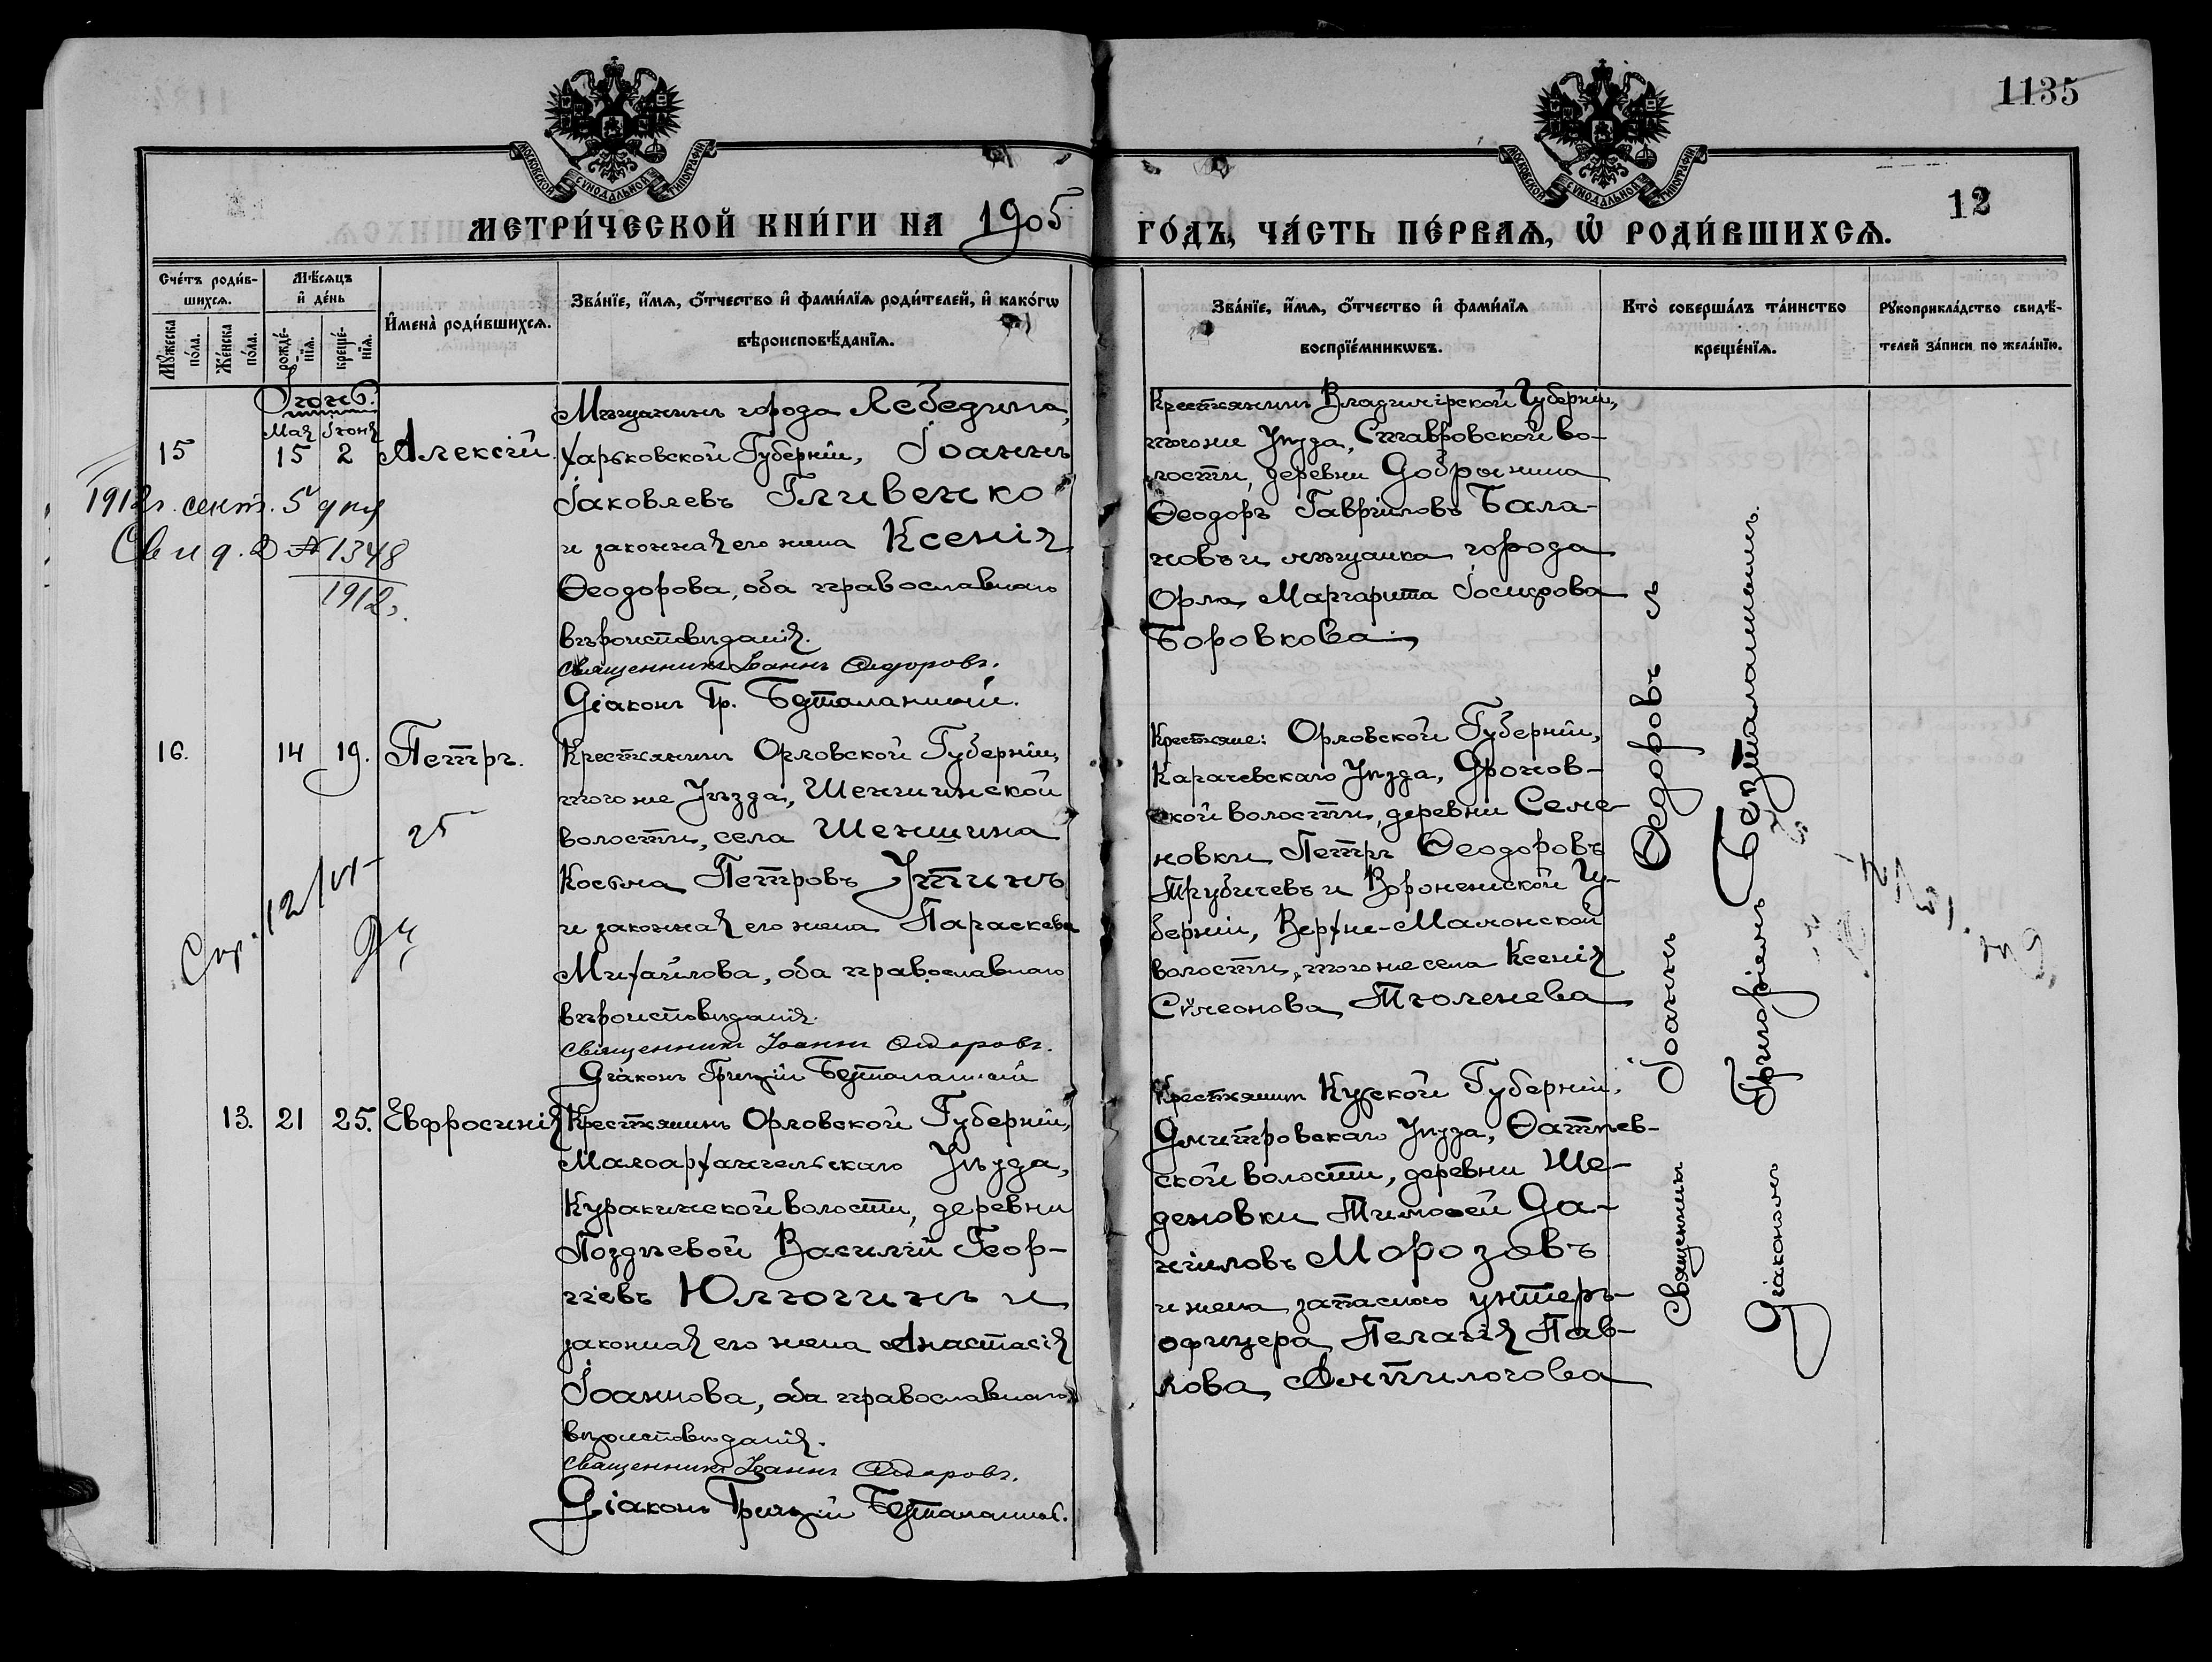 1135
МОСКОВСКОЙ СѴНОДАЛЬНОЙ ТИПОГРАФІИ
МОСКОВСКОЙ СѴНОДАЛЬНОЙ ТИПОГРАФІИ
12
МЕТРИ́ЧЕСКОЙ КНИ́ГИ НА 1905 ГО́ДЪ, ЧА́СТЬ ПЕ́РВАѦ, Ѡ҆ РОДИ́ВШИХСѦ.
Сче́тъ роди́в-
шихсѧ.
Мѹ́жеска по́ла.
Же́нска по́ла.
Мѣ́сѧцъ
и҆ де́нь
рожде́-
нїѧ.
креще́-
нїѧ.
И҆мена̀ роди́вшихсѧ.
Зва́нїе, и҆́мѧ, ѻ҆́тчество и҆ фами́лїѧ роди́телей, и҆ како́гѡ
вѣроисповѣ́данїѧ.
Зва́нїе, и҆́мѧ, ѻ҆́тчество и҆ фами́лїѧ
воспрїе́мникѡвъ.
Кто̀ соверша́лъ та́инство
креще́нїѧ.
Рѹкоприкла́дство свидѣ́-
телей за́писи по жела́нїю.
Іюнь.
Мая Іюня
15 15 2 Алексій.
1912 г. сент. 5 дня
Свид. 2 № 1348
1912 г.
Мѣщанинъ города Лебедина,
Харьковской Губерніи, Іоаннъ
Іаковлевъ Гливенко
и законная его жена Ксенія
Ѳеодорова, оба православнаго
вѣроисповѣданія.
Священникъ Іоаннъ Ѳедоровъ.
Діаконъ Гр. Безталанный.
Крестьянинъ Владимірской Губерніи,
того же Уѣзда, Ставровской во-
лости, деревни Добрынина
Ѳеодоръ Гавріиловъ Бала-
новъ и мѣщанка города
Орла Маргарита Іосифова
Боровкова.
16. 14 19. Петръ.
25
Спр. 12/VI
Крестьянинъ Орловской Губерніи,
того же Уѣзда, Шеншинской
волости, села Шеншина
Косьма Петровъ Утинъ
и законная его жена Параскева
Михаилова, оба православнаго
вѣроисповѣданія.
Священникъ Іоаннъ Ѳедоровъ.
Діаконъ Григорій Безталанный
Крестьяне: Орловской Губерніи,
Карачевскаго Уѣзда, Дронов-
ской волости, деревни Семе-
новки Петръ Ѳеодоровъ
Трубичевъ и Воронежской Гу-
берніи, Верхне-Мамонской
волости, того же села Ксенія
Сѵмеонова Тюленева
13. 21 25. Евфросинія
Крестьянинъ Орловской Губерніи,
Малоархангельскаго Уѣзда,
Куракинской волости, деревни
Поздѣевой Василій Геор-
гіевъ Юлюгинъ и
законная его жена Анастасія
Іоаннова, оба православнаго
вѣроисповѣданія.
Священникъ Іоаннъ Ѳедоровъ.
Діаконъ Григорій Безталанный.
Крестьянинъ Курской Губерніи,
Дмитровскаго Уѣзда, Фатѣев-
ской волости, деревни Ше-
деновки Тимоѳей Да-
ніиловъ Морозовъ
и жена запаснаго унтеръ-
офицера Пелагія Пав-
лова Антилогова
Священникъ Іоаннъ Ѳедоровъ съ
Діакономъ Григоріемъ Безталаннымъ.